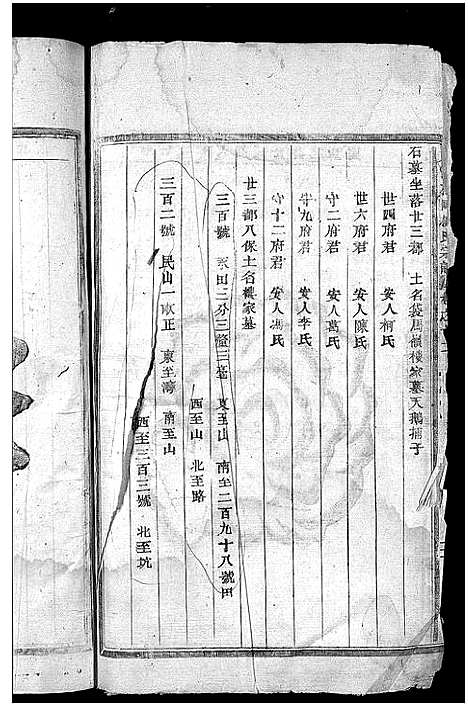 石墓坐落廿三都　土名袋周嶺樓家墓天鵝捕子
世四府君　安人柯氏
世六府君　安人陳氏
守二府君　安人葛氏
守九府君　安人李氏
守十二府君　安人馮氏
廿三都八保土名樓家墓
三百號　永田三分三釐三毫　東至山　南至二百九十八號田
西至山　北至路
三百二號　民山一畝正　東至灣　南至山
西至三百三號　北至坑